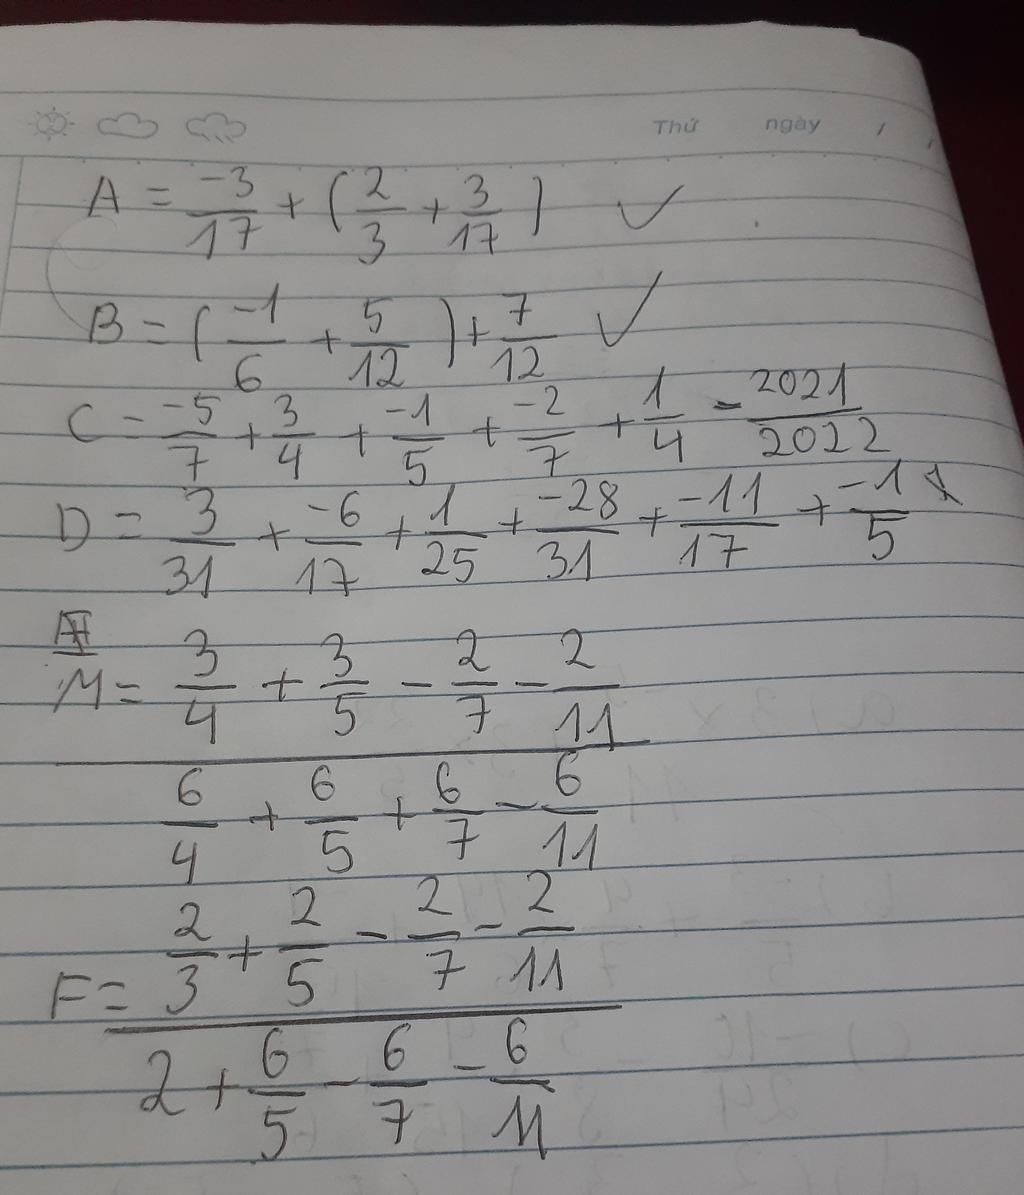 Thứ ngày / /
A = -3/17 + (2/3 + 3/17) ✓
B = (-1/6 + 5/12) + 7/12 ✓
C = -5/7 + 3/4 + -1/5 + -2/7 + 1/4 - 2021/2022
D = 3/31 + -6/17 + 1/25 + -28/31 + -11/17 + -1/5
M = (3/4 + 3/5 - 2/7 - 2/11) / (6/4 + 6/5 + 6/7 - 6/11)
F = (2/3 + 2/5 - 2/7 - 2/11) / (2 + 6/5 - 6/7 - 6/11)